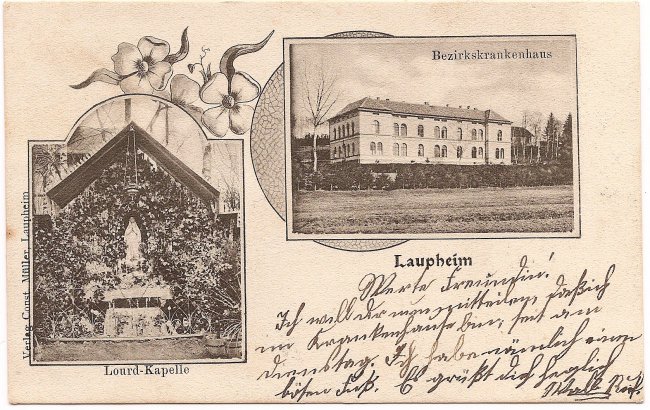 Bezirkskrankenhaus
Laupheim
Lourd-Kapelle
Verlag Const. Müller, Laupheim
Werte Freundin!
Ich will dir nun mitteilen, daß ich
im Krankenhause bin, seit am
Dienstag. Ich habe nämlich einen
bösen Fuß. Es grüßt dich herzlich